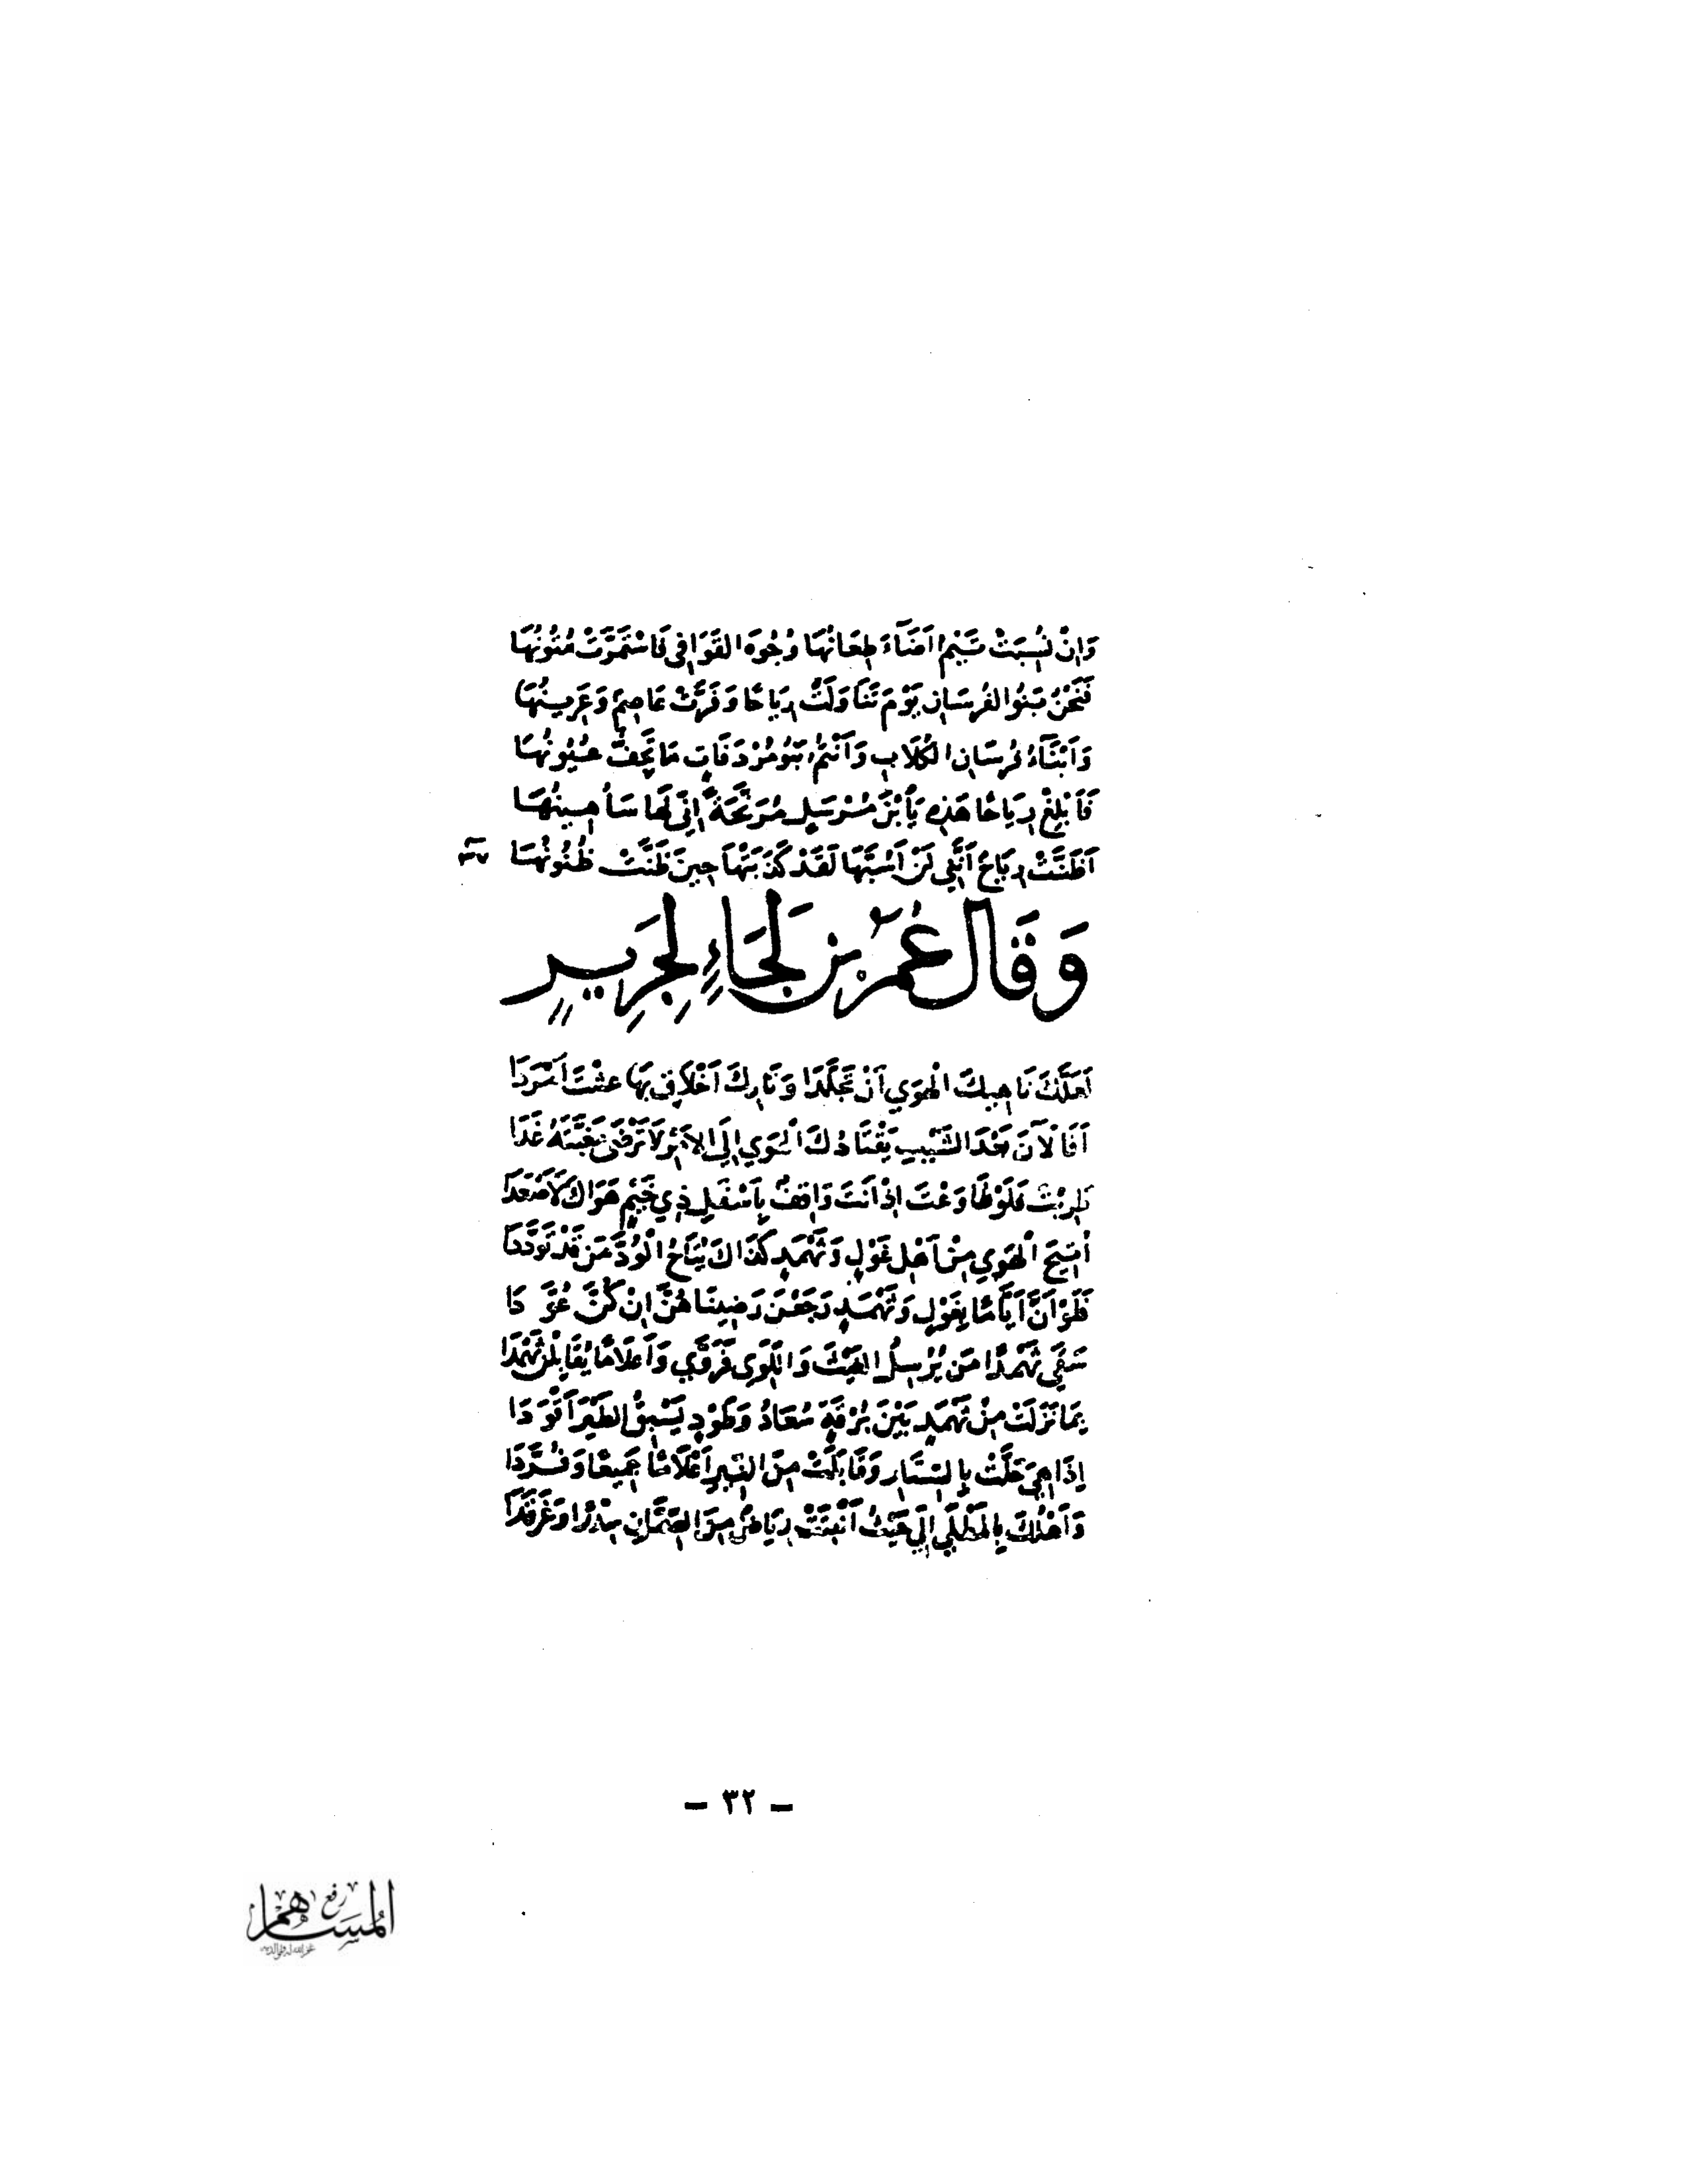 وَاِنْ نُسِبَتْ تَيْمٌ اَضَآءَ طِعَانُهَا وُجُوهَ القَوَافِى فَاسْتَمَرَّتْ مُتُونُهَا
فَنَحْنُ بَنُوا الفُرسَانِ يَوْمَ تَنَاوَلَتْ رِيَاحًا وَفَرَّتْ عَاصِمٌ وَعَرِينُهَا
وَاَبْنَآءُ فُرسَانِ الكُلَابِ وَاَنْتُمُ بَنُو مُرْدَفَاتٍ مَا تَجِفُّ عُيُونُهَا
فَاَبْلِغْ رِيَاحًا هَذِهِ يَا بْنَ مُرْسَلٍ مُرَنَّحَةً اِنِّى لَهَا سَاُهِينُهَا
اَظَنَّتْ رِيَاحٌ اَنَّنِي لَنْ اَسُبَّهَا لَقَدْ كَذَبَتْهَا حِينَ ظَنَّتْ ظُنُونُهَا
وَقَالَ عُمَرُ بْنُ لَجَاءٍ لِجَرِيرٍ
لَعَلَّكَ نَاهِيكَ الْهَوَي اَنْ تَجَلَّدَا وَتَارِكَ اَخْلَاقٍ بِهَا عِشْتَ اَمْرَدَا
اَفَالْآنَ بَعْدَ الشَّيْبِ يَقْتَادُكَ الْهَوَي اِلَي الاَمْرِ لَا تَرْضَى مَغَبَّتَهُ غَدَا
طَرِبْتَ فَلَوْ طَاوَعْتَ اِذْ اَنْتَ وَاقِفٌ بِاَسْفَلِ ذِي خَيْمٍ هَوَاكَ لَاَصْعَدَا
اُتِيحَ الْهَوَي مِنْ اَهْلِ غَوْلٍ وَثَهْمَدٍ كَذَاكَ يُتَاحُ الْوُدُّ مَنْ قَدْ تَوَدَّدَا
فَلَوْ اَنَّ اَيَّامًا بِغَوْلٍ وَثَهْمَدٍ رَجَعْنَ رَضِينَاهُنَّ اِنْ كُنَّ عُوَّدَا
سَقَي ثَهْمَدًا مَن يُرْسِلُ الغَيْثَ وَاللِّوَي فَرَوَّي وَاَعْلَامًا يُقَابِلْنَ ثَهْمَدَا
بِمَا نَزَلَتْ مِنْ ثَهْمَدٍ بَيْنَ بُرْقَةٍ سُعَادُ وَطَوْدٍ يَسْبِقُ الطَيْرَ اَقْوَدَا
اِذَا هِيَ حَلَّتْ بِالسِّتَارِ وَقَابَلَتْ مِنَ النِّيرِ اَعْلَامًا جَمِيعًا وَفُرَّدَا
وَاَهْلُكَ بِالمَطْلَي اِلَي حَيْثُ اَنْبَتَتْ رِيَاضٌ مِنَ الصَّمَّانِ سِدْرًا وَغَرْقَدَا
- ٣٢ -
رفع
المساهم